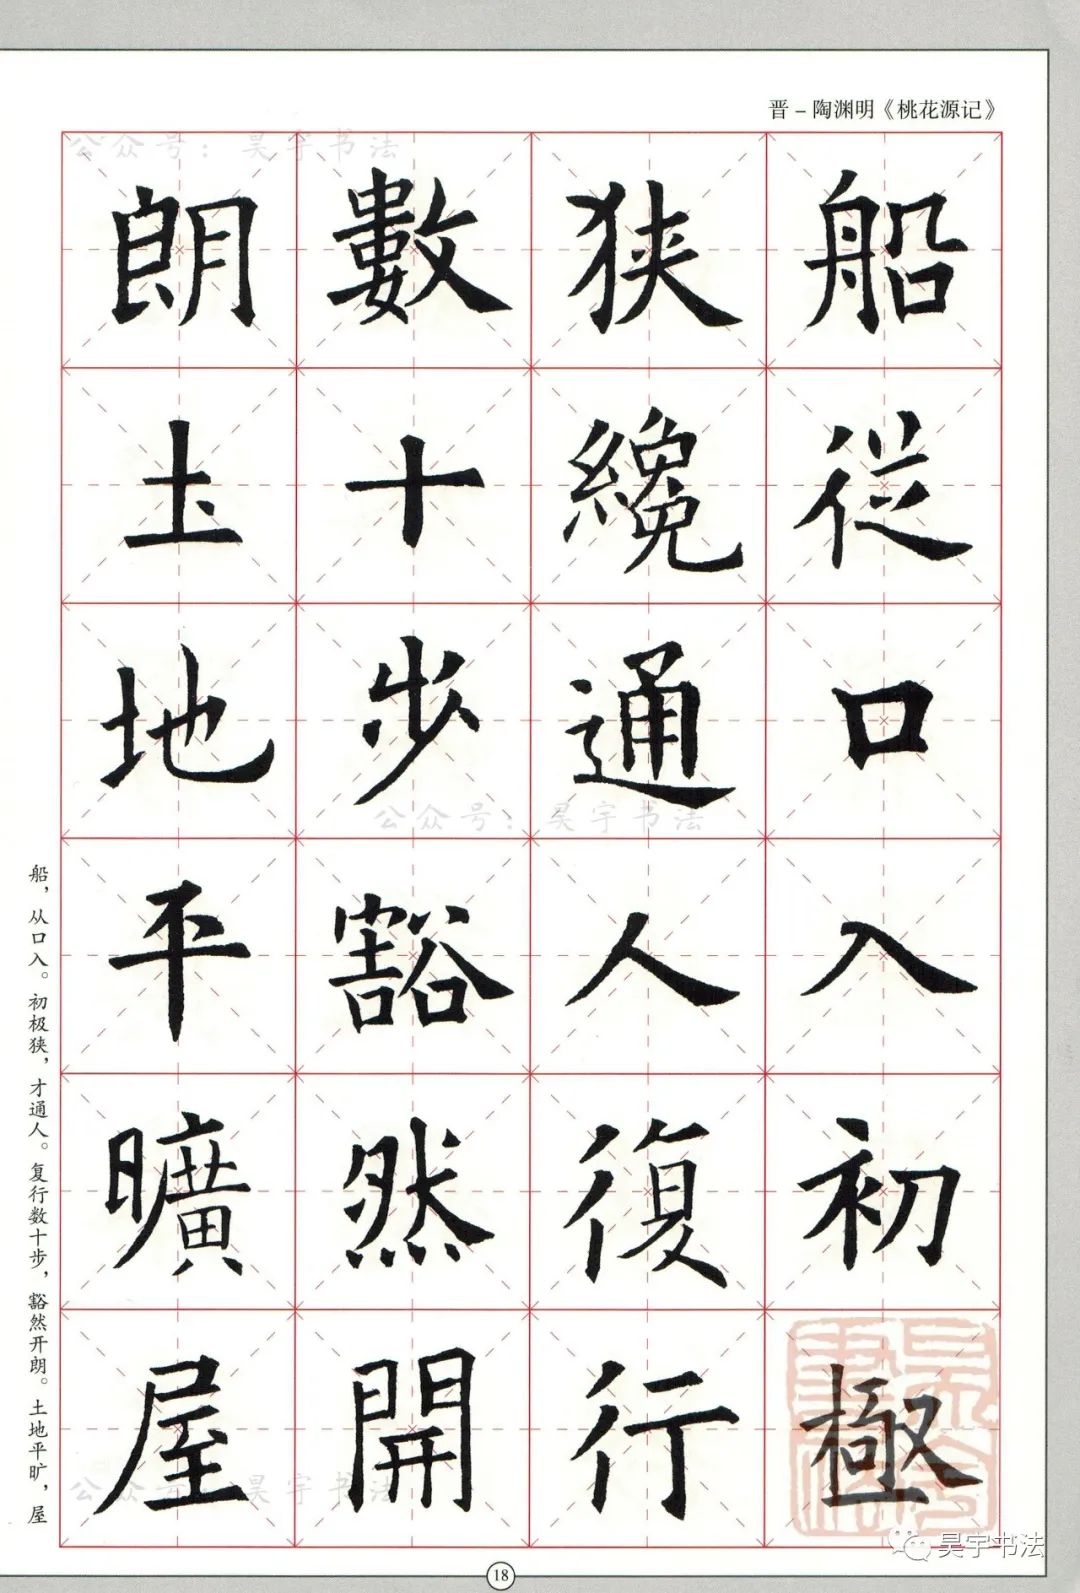 晋－陶渊明《桃花源记》
公众号：昊宇书法
船從口入初極
狭纔通人復行
數十步豁然開
朗土地平曠屋
公众号：昊宇书法
公众号：昊宇书法
船，从口入。初极狭，才通人。复行数十步，豁然开朗。土地平旷，屋
昊宇书法
18